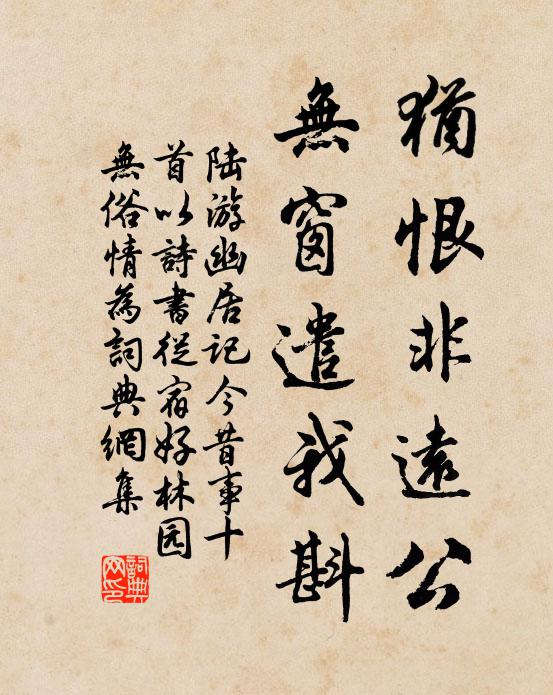 猶恨非遠公
無窗遣我斟
陆游幽居记今昔事十
首以詩書從宿好林园
無俗情為詞典網集
詞典網印